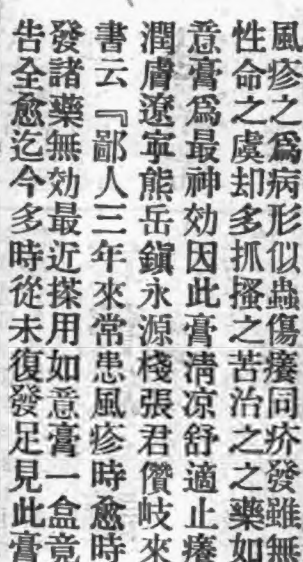 風疹之爲病形似蟲傷癢同疥發雖無
性命之虞却多抓搔之苦治之之藥如
意膏爲最神効因此膏淸凉舒適止癢
潤膚遼寧熊岳鎭永源棧張君儹岐來
書云『鄙人三年來常患風疹時愈時
發諸藥無効最近搽用如意膏一盒竟
告全愈迄今多時從未復發足見此膏